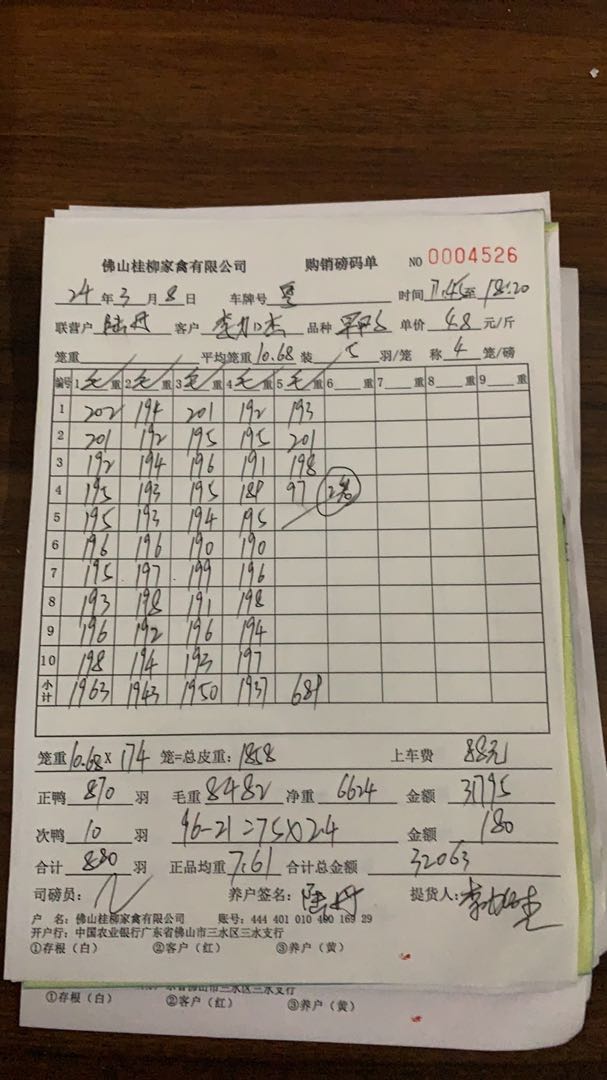 佛山桂柳家禽有限公司 购销磅码单 NO 0004526
24 年 3 月 8 日 车牌号 粤 时间 17:45 至 18:20
联营户 陆丹 客户 品种 单价 4.8 元/斤
笼重 平均笼重 10.68 装 5 羽/笼 称 4 笼/磅
编号 1 毛 重 2 毛 重 3 毛 重 4 毛 重 5 毛 重 6 重 7 重 8 重 9 重
1 202 194 201 192 193
2 201 192 195 195 201
3 192 194 196 191 198
4 195 193 195 189 97 2笼
5 195 193 194 195
6 196 196 190 190
7 195 197 199 196
8 193 198 191 198
9 196 192 196 194
10 198 194 193 197
小计 1963 1943 1950 1937 689
笼重 10.68 X 174 笼=总皮重: 1858 上车费 88元
正鸭 870 羽 毛重 8482 净重 6624 金额 31795
次鸭 10 羽 96-21=75X2.4 金额 180
合计 880 羽 正品均重 7.61 合计总金额 32063
司磅员: 养户签名: 陆丹 提货人:
户 名: 佛山桂柳家禽有限公司 账号: 444 401 010 400 169 29
开户行: 中国农业银行广东省佛山市三水区三水支行
①存根(白) ②客户(红) ③养户(黄)
广东省佛山市三水区三水支行
①存根(白) ②客户(红) ③养户(黄)